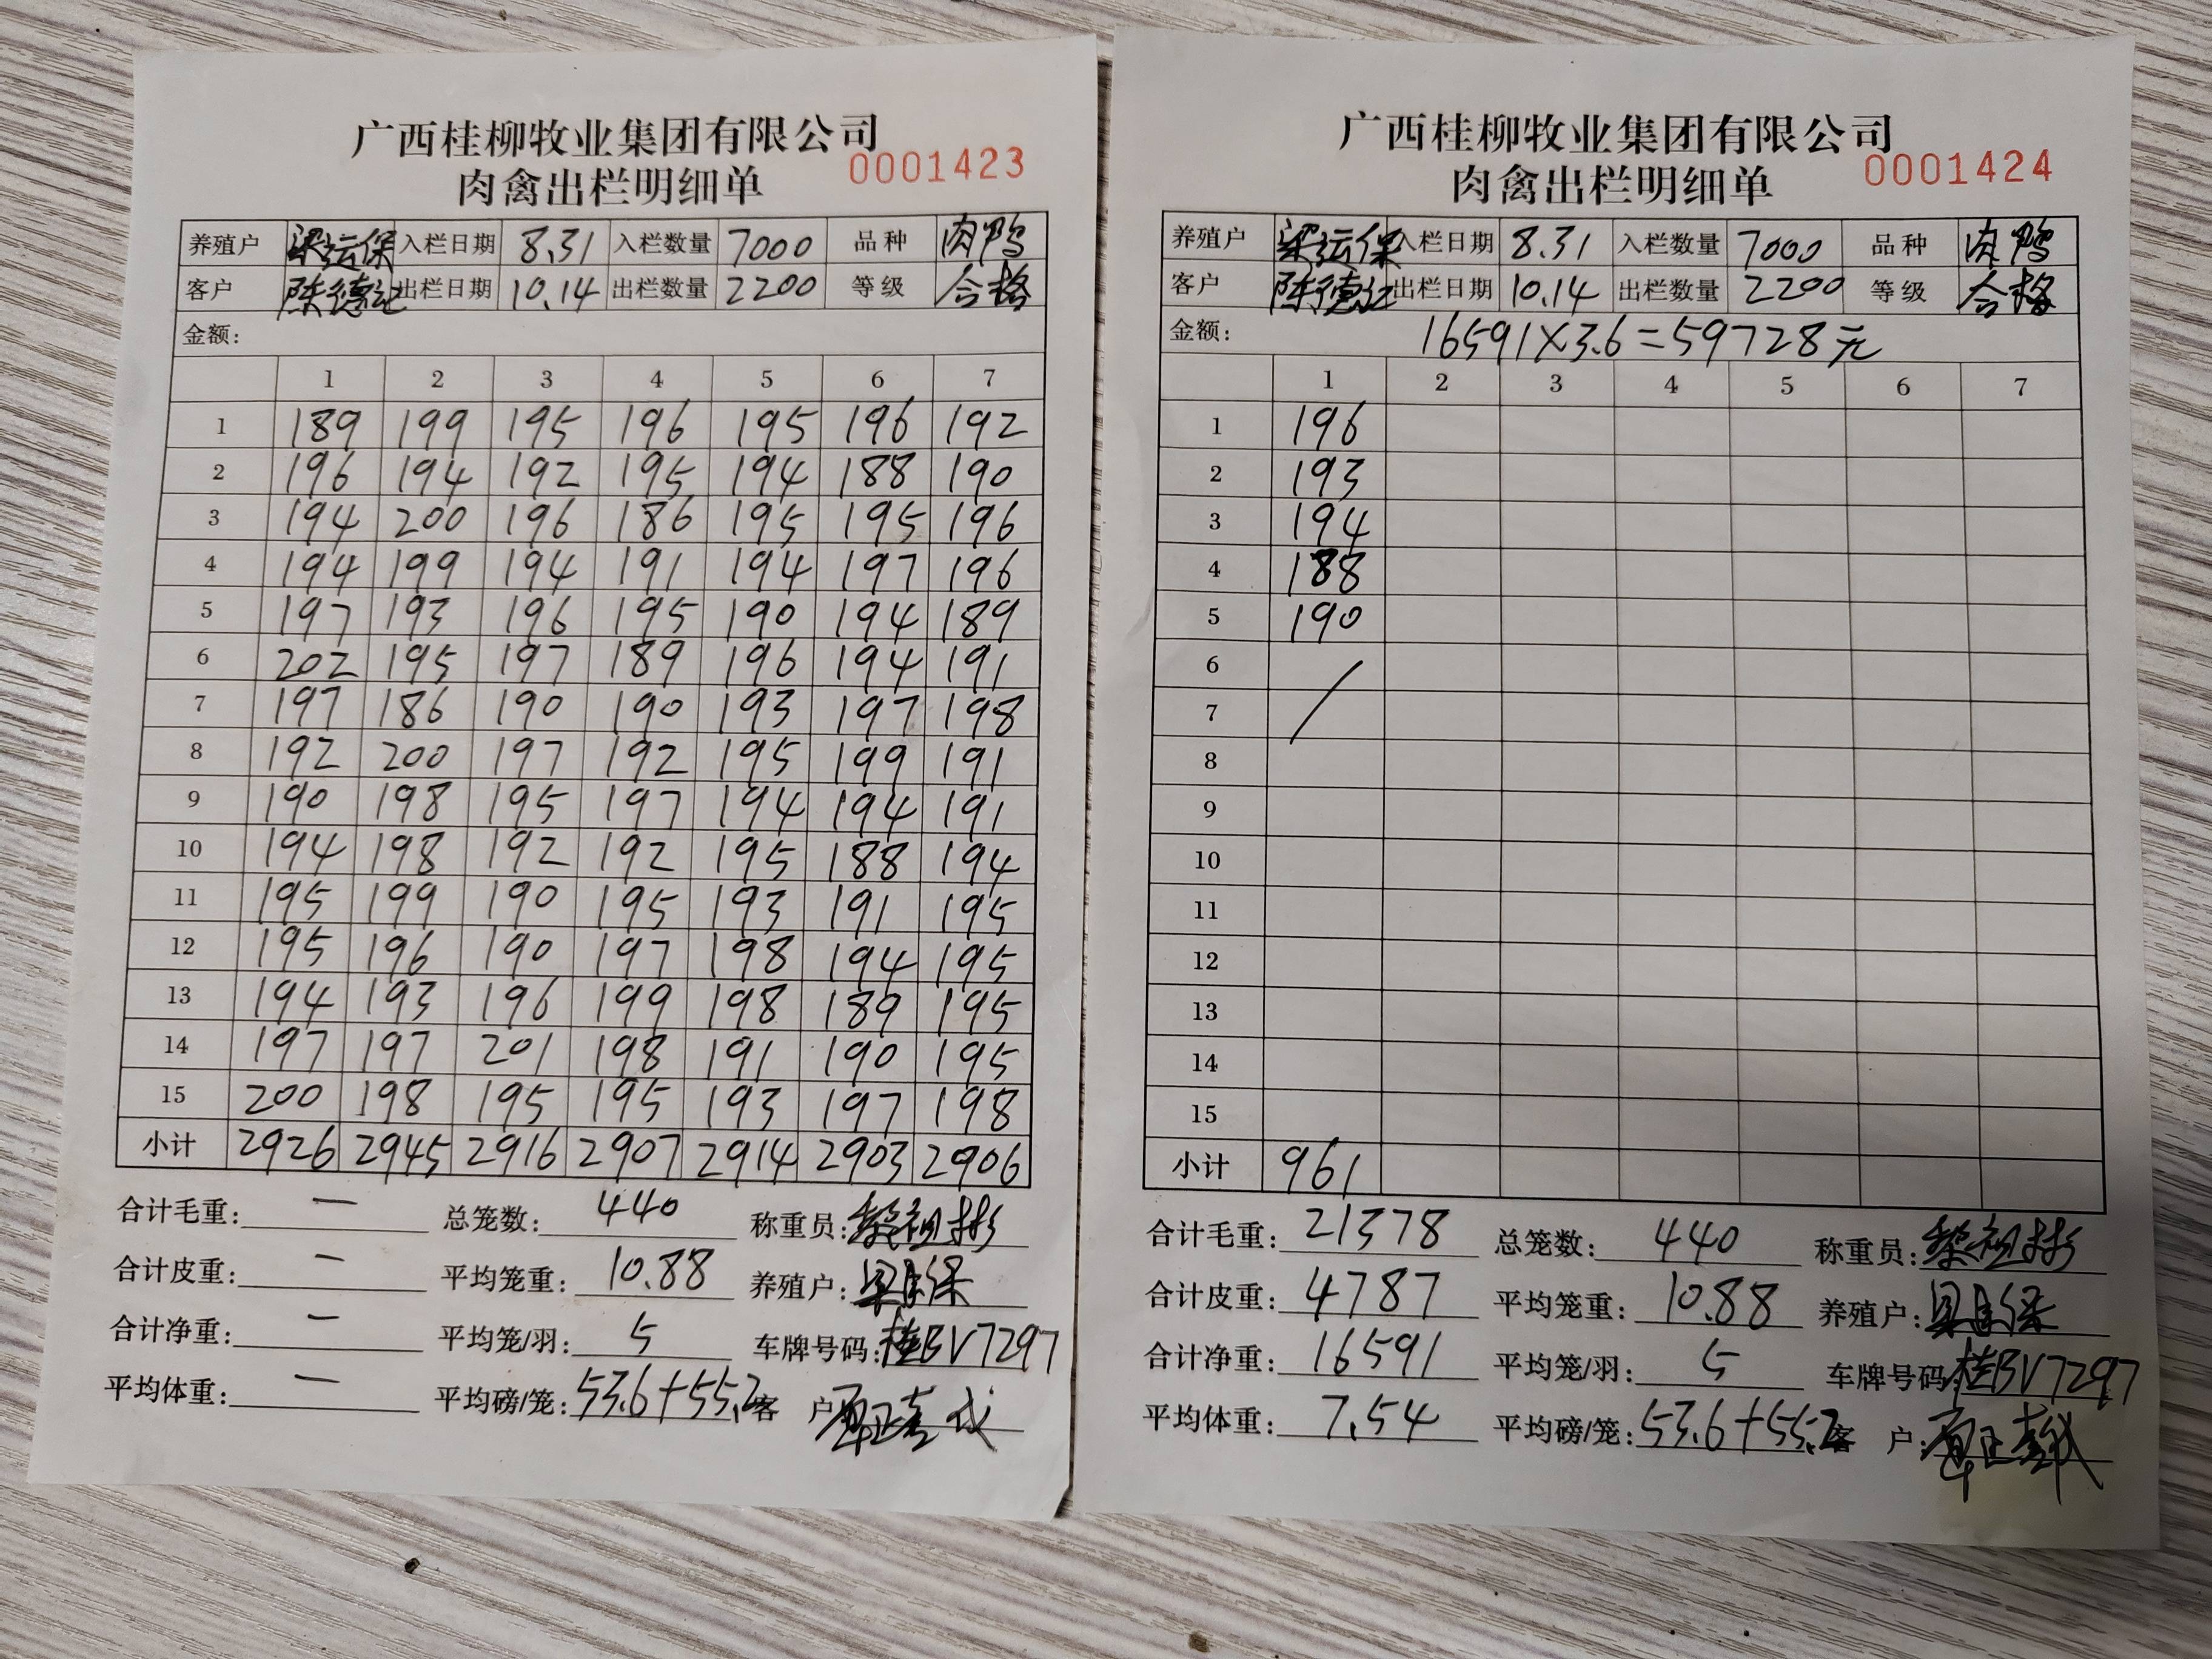 广西桂柳牧业集团有限公司
肉禽出栏明细单 0001423
养殖户 梁运保 入栏日期 8.31 入栏数量 7000 品种 肉鸭
客户 陈德记 出栏日期 10.14 出栏数量 2200 等级 合格
金额:
1 2 3 4 5 6 7
1 189 199 195 196 195 196 192
2 196 194 192 195 194 188 190
3 194 200 196 186 195 195 196
4 194 199 194 191 194 197 196
5 197 193 196 195 190 194 189
6 202 195 197 189 196 194 191
7 197 186 190 190 193 197 198
8 192 200 197 192 195 199 191
9 190 198 195 197 194 194 191
10 194 198 192 192 195 188 194
11 195 199 190 195 193 191 195
12 195 196 190 197 198 194 195
13 194 193 196 199 198 189 195
14 197 197 201 198 191 190 195
15 200 198 195 195 193 197 198
小计 2926 2945 2916 2907 2914 2903 2906
合计毛重: — 总笼数: 440 称重员: 黎祖彬
合计皮重: — 平均笼重: 10.88 养殖户:
合计净重: — 平均笼/羽: 5 车牌号码: 桂BV7297
平均体重: — 平均磅/笼: 53.6+55.2 客 户:
广西桂柳牧业集团有限公司
肉禽出栏明细单 0001424
养殖户 梁运保 入栏日期 8.31 入栏数量 7000 品种 肉鸭
客户 陈德记 出栏日期 10.14 出栏数量 2200 等级 合格
金额: 16591×3.6=59728元
1 2 3 4 5 6 7
1 196
2 193
3 194
4 188
5 190
6
7
8
9
10
11
12
13
14
15
小计 961
合计毛重: 21378 总笼数: 440 称重员: 黎祖彬
合计皮重: 4787 平均笼重: 10.88 养殖户:
合计净重: 16591 平均笼/羽: 5 车牌号码: 桂BV7297
平均体重: 7.54 平均磅/笼: 53.6+55.2 客 户: